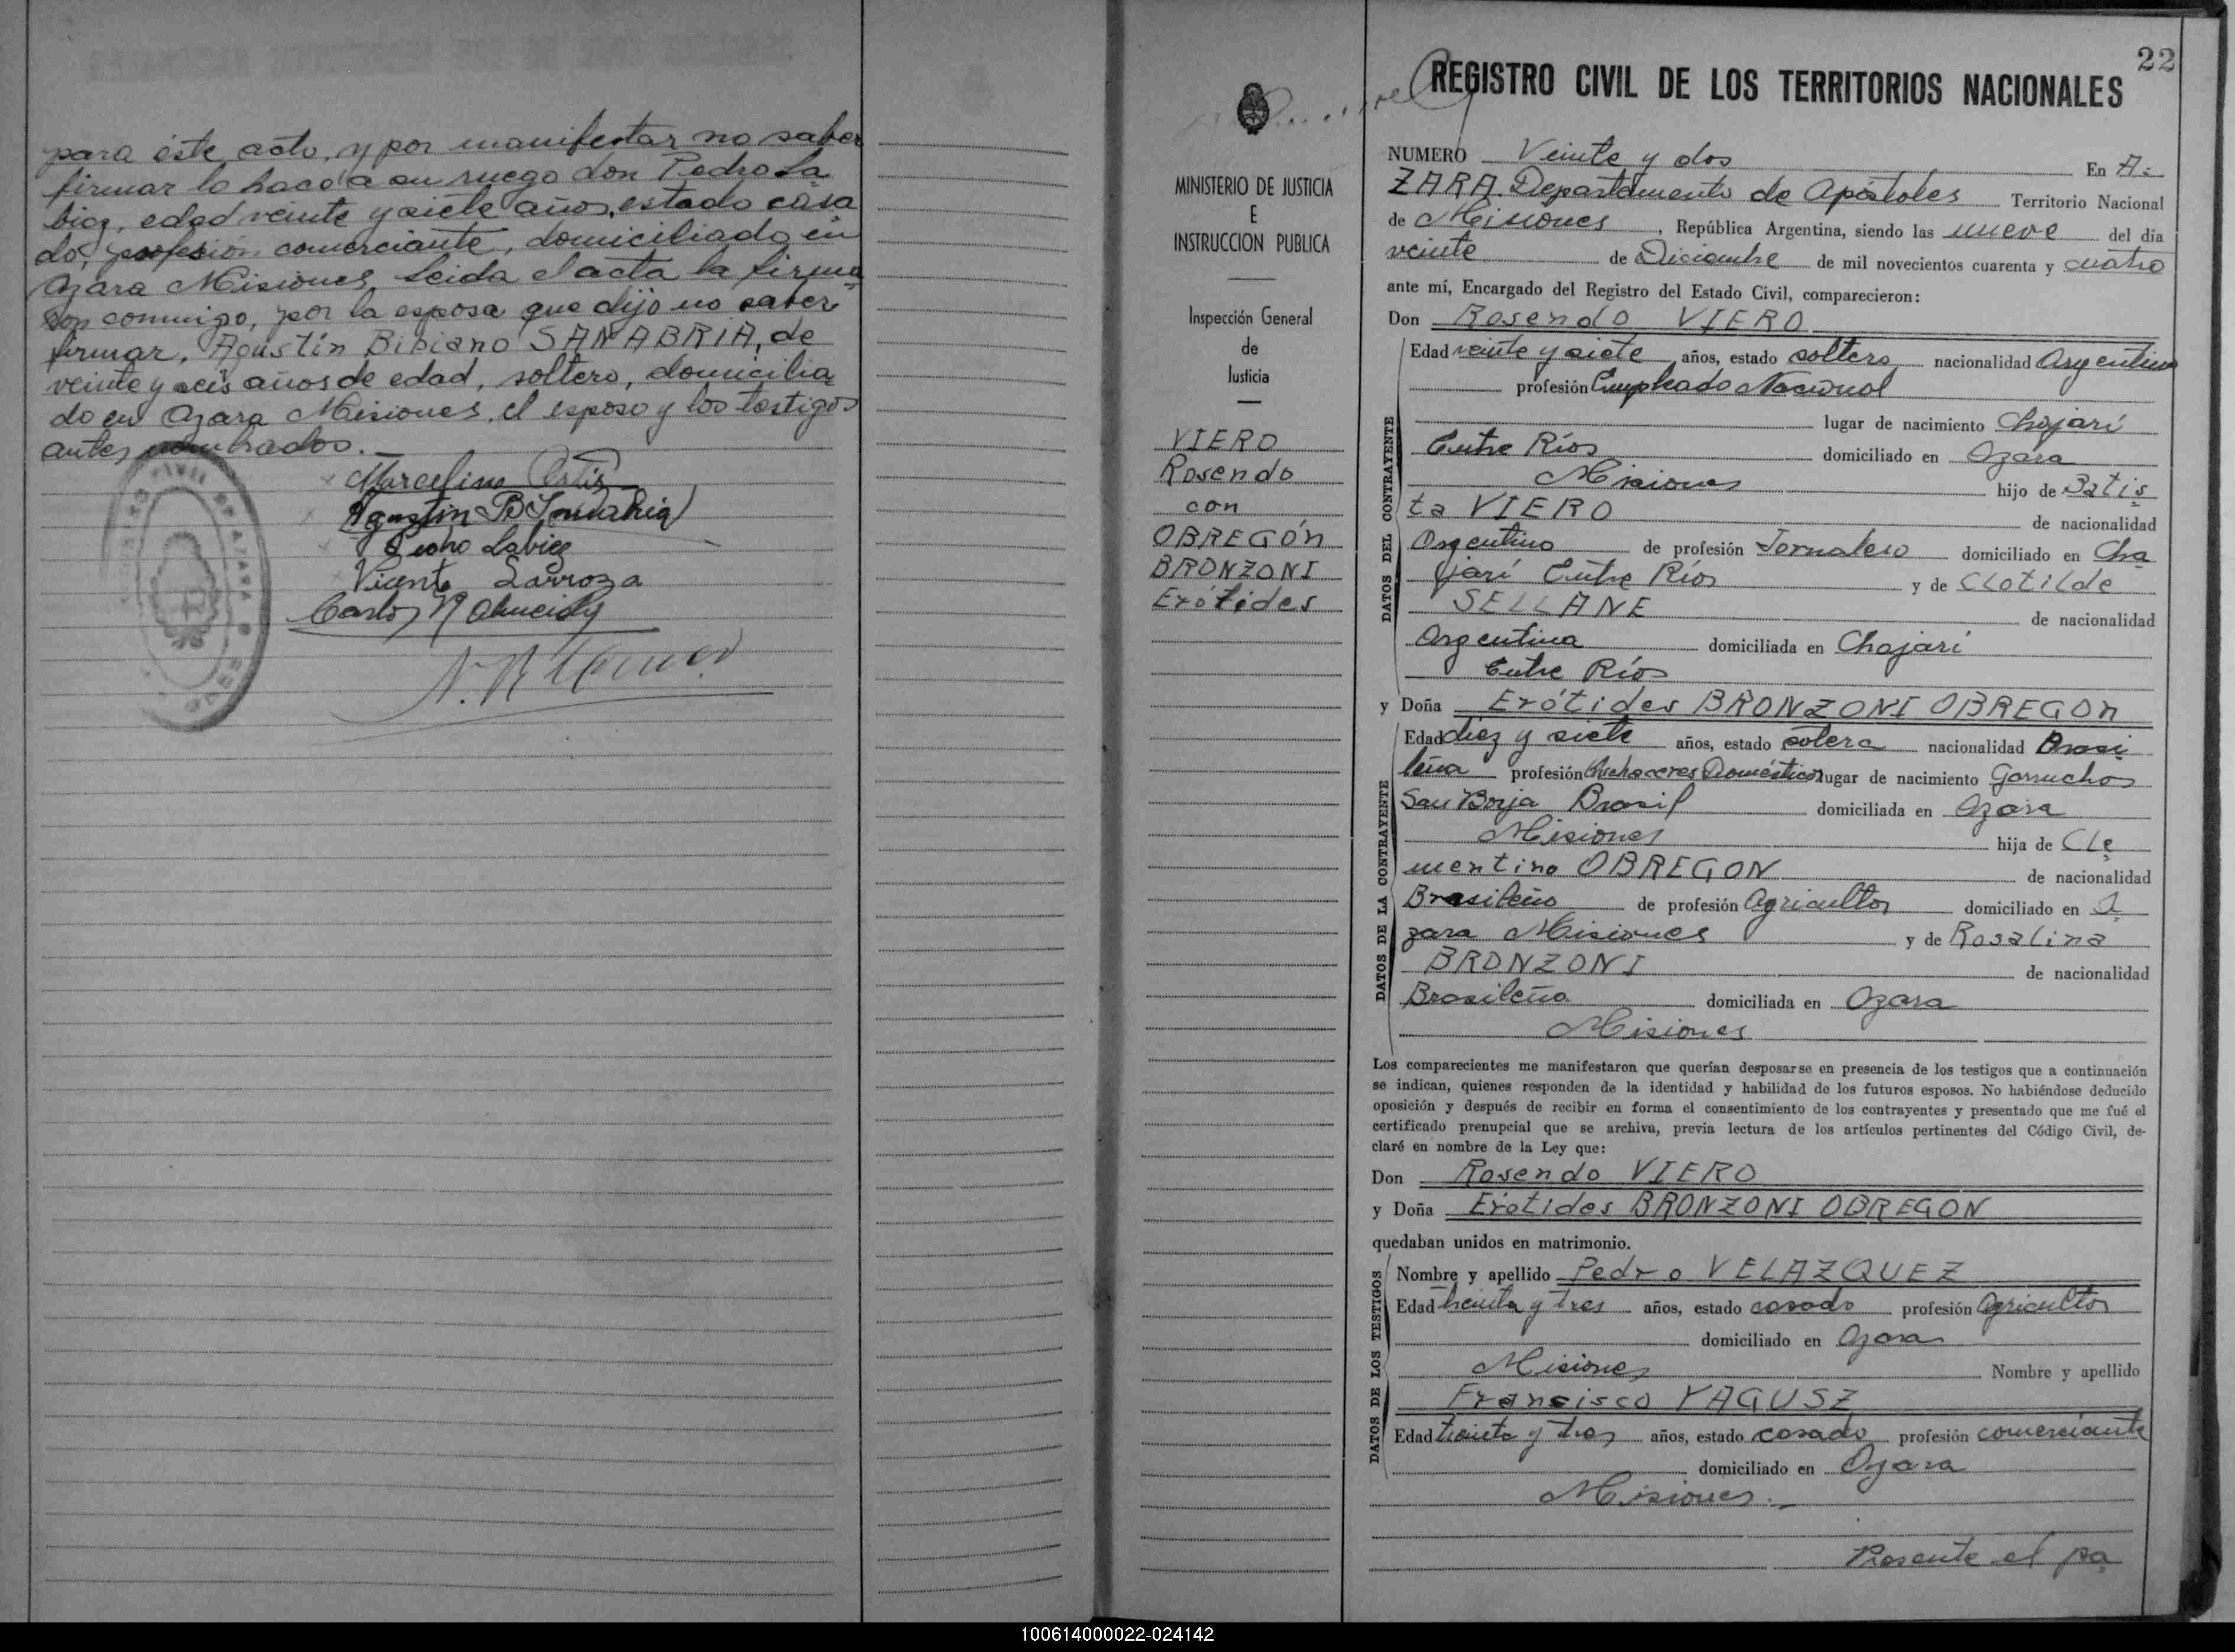 para éste acto, y por manifestar no saber
firmar lo hace a su ruego don Pedro La
biez, edad veinte y siete años, estado casa
do, profesión comerciante, domiciliado en
Azara Misiones, Leida el acta la firma
ron conmigo, por la esposa que dijo no saber
firmar, Agustín Bibiano SANABRIA, de
veinte y seis años de edad, soltero, domicilia
do en Azara Misiones, el esposo y los testigos
antes nombrados.
Marcelino Ortis
Agustin B Sanabria
Pedro Labiez
Vicente Larroza
Carlos M Almeida
MINISTERIO DE JUSTICIA
E
INSTRUCCION PUBLICA
Inspección General
de
Justicia
VIERO
Rosendo
con
OBREGÓN
BRONZONI
Erótides
22
REGISTRO CIVIL DE LOS TERRITORIOS NACIONALES
NUMERO Veinte y dos En A-
ZARA Departamento de Apóstoles Territorio Nacional
de Misiones, República Argentina, siendo las nueve del día
veinte de Diciembre de mil novecientos cuarenta y cuatro
ante mí, Encargado del Registro del Estado Civil, comparecieron:
Don Rosendo VIERO
DATOS DEL CONTRAYENTE
Edad veinte y siete años, estado soltero nacionalidad Argentina
profesión Empleado Nacional
lugar de nacimiento Chajarí
Entre Ríos domiciliado en Azara
Misiones hijo de Batis
ta VIERO de nacionalidad
Argentino de profesión Jornalero domiciliado en Cha
jarí Entre Ríos y de Clotilde
SELLANE de nacionalidad
Argentina domiciliada en Chajarí
Entre Ríos
y Doña Erótides BRONZONI OBREGON
DATOS DE LA CONTRAYENTE
Edad diez y siete años, estado soltera nacionalidad Brasi
leña profesión Quehaceres Domésticos lugar de nacimiento Garruchos
San Borja Brasil domiciliada en Azara
Misiones hija de Cle
mentino OBREGON de nacionalidad
Brasileño de profesión Agricultor domiciliado en A
zara Misiones y de Rosalina
BRONZONI de nacionalidad
Brasileña domiciliada en Azara
Misiones
Los comparecientes me manifestaron que querían desposarse en presencia de los testigos que a continuación
se indican, quienes responden de la identidad y habilidad de los futuros esposos. No habiéndose deducido
oposición y después de recibir en forma el consentimiento de los contrayentes y presentado que me fué el
certificado prenupcial que se archiva, previa lectura de los artículos pertinentes del Código Civil, de-
claré en nombre de la Ley que:
Don Rosendo VIERO
y Doña Erótides BRONZONI OBREGON
quedaban unidos en matrimonio.
DATOS DE LOS TESTIGOS
Nombre y apellido Pedro VELAZQUEZ
Edad treinta y tres años, estado casado profesión Agricultor
domiciliado en Azara
Misiones Nombre y apellido
Francisco YAGUSZ
Edad treinta y tres años, estado casado profesión comerciante
domiciliado en Azara
Misiones.-
Presente el pa
100614000022-024142